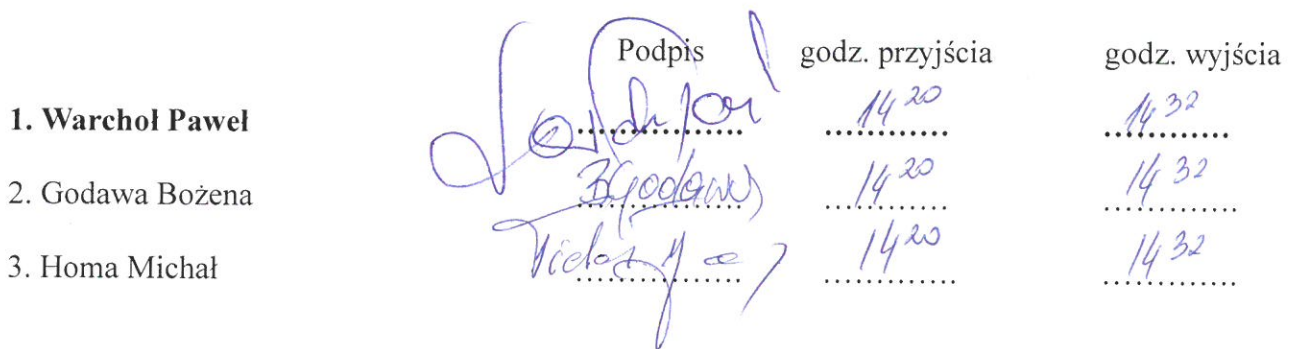 Podpis godz. przyjścia godz. wyjścia
1. Warchoł Paweł 14 20 14 32
2. Godawa Bożena BGodawa 14 20 14 32
3. Homa Michał 14 20 14 32